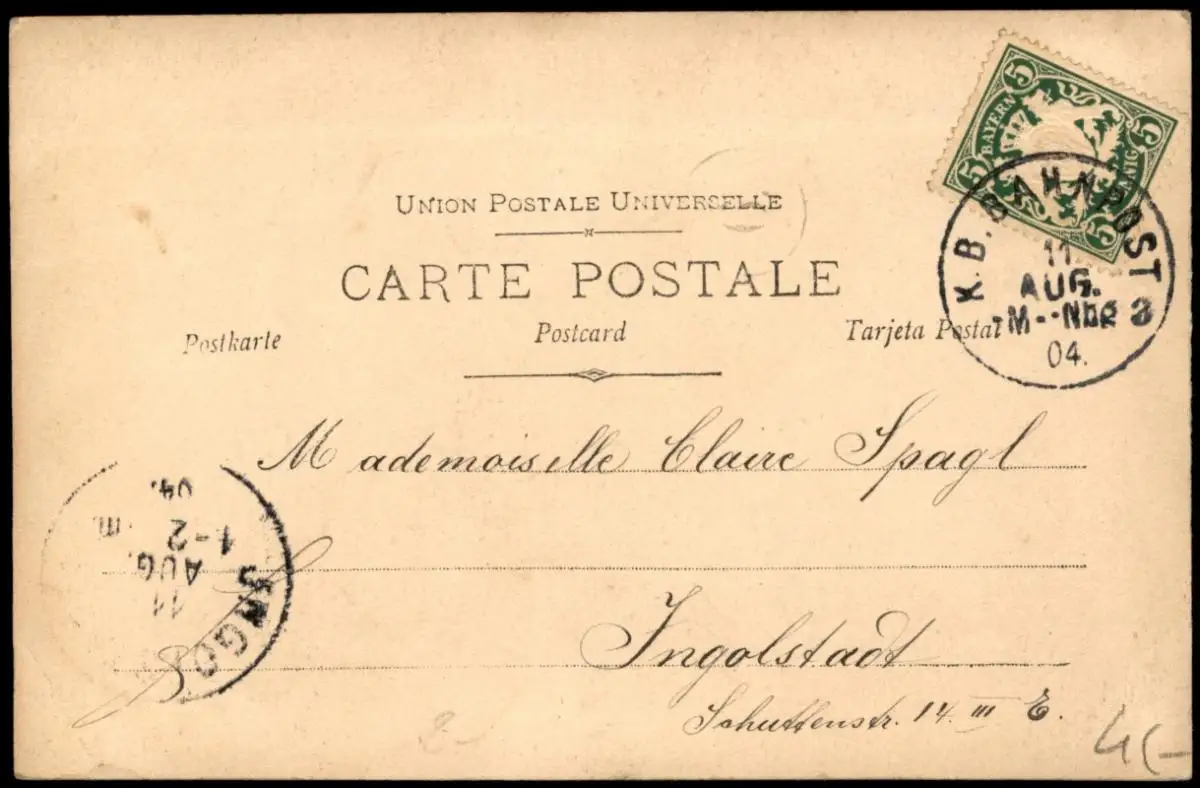 5 5
BAYERN
5 5
K.B. BAHNPOST
11
AUG.
M--Nbg 3
04.
UNION POSTALE UNIVERSELLE
CARTE POSTALE
Postkarte Postcard Tarjeta Postal
Mademoiselle Claire Spagl
04.
1-2
AUG.
11
Ingolstadt
Schuttenstr. 14 III E.
4,-